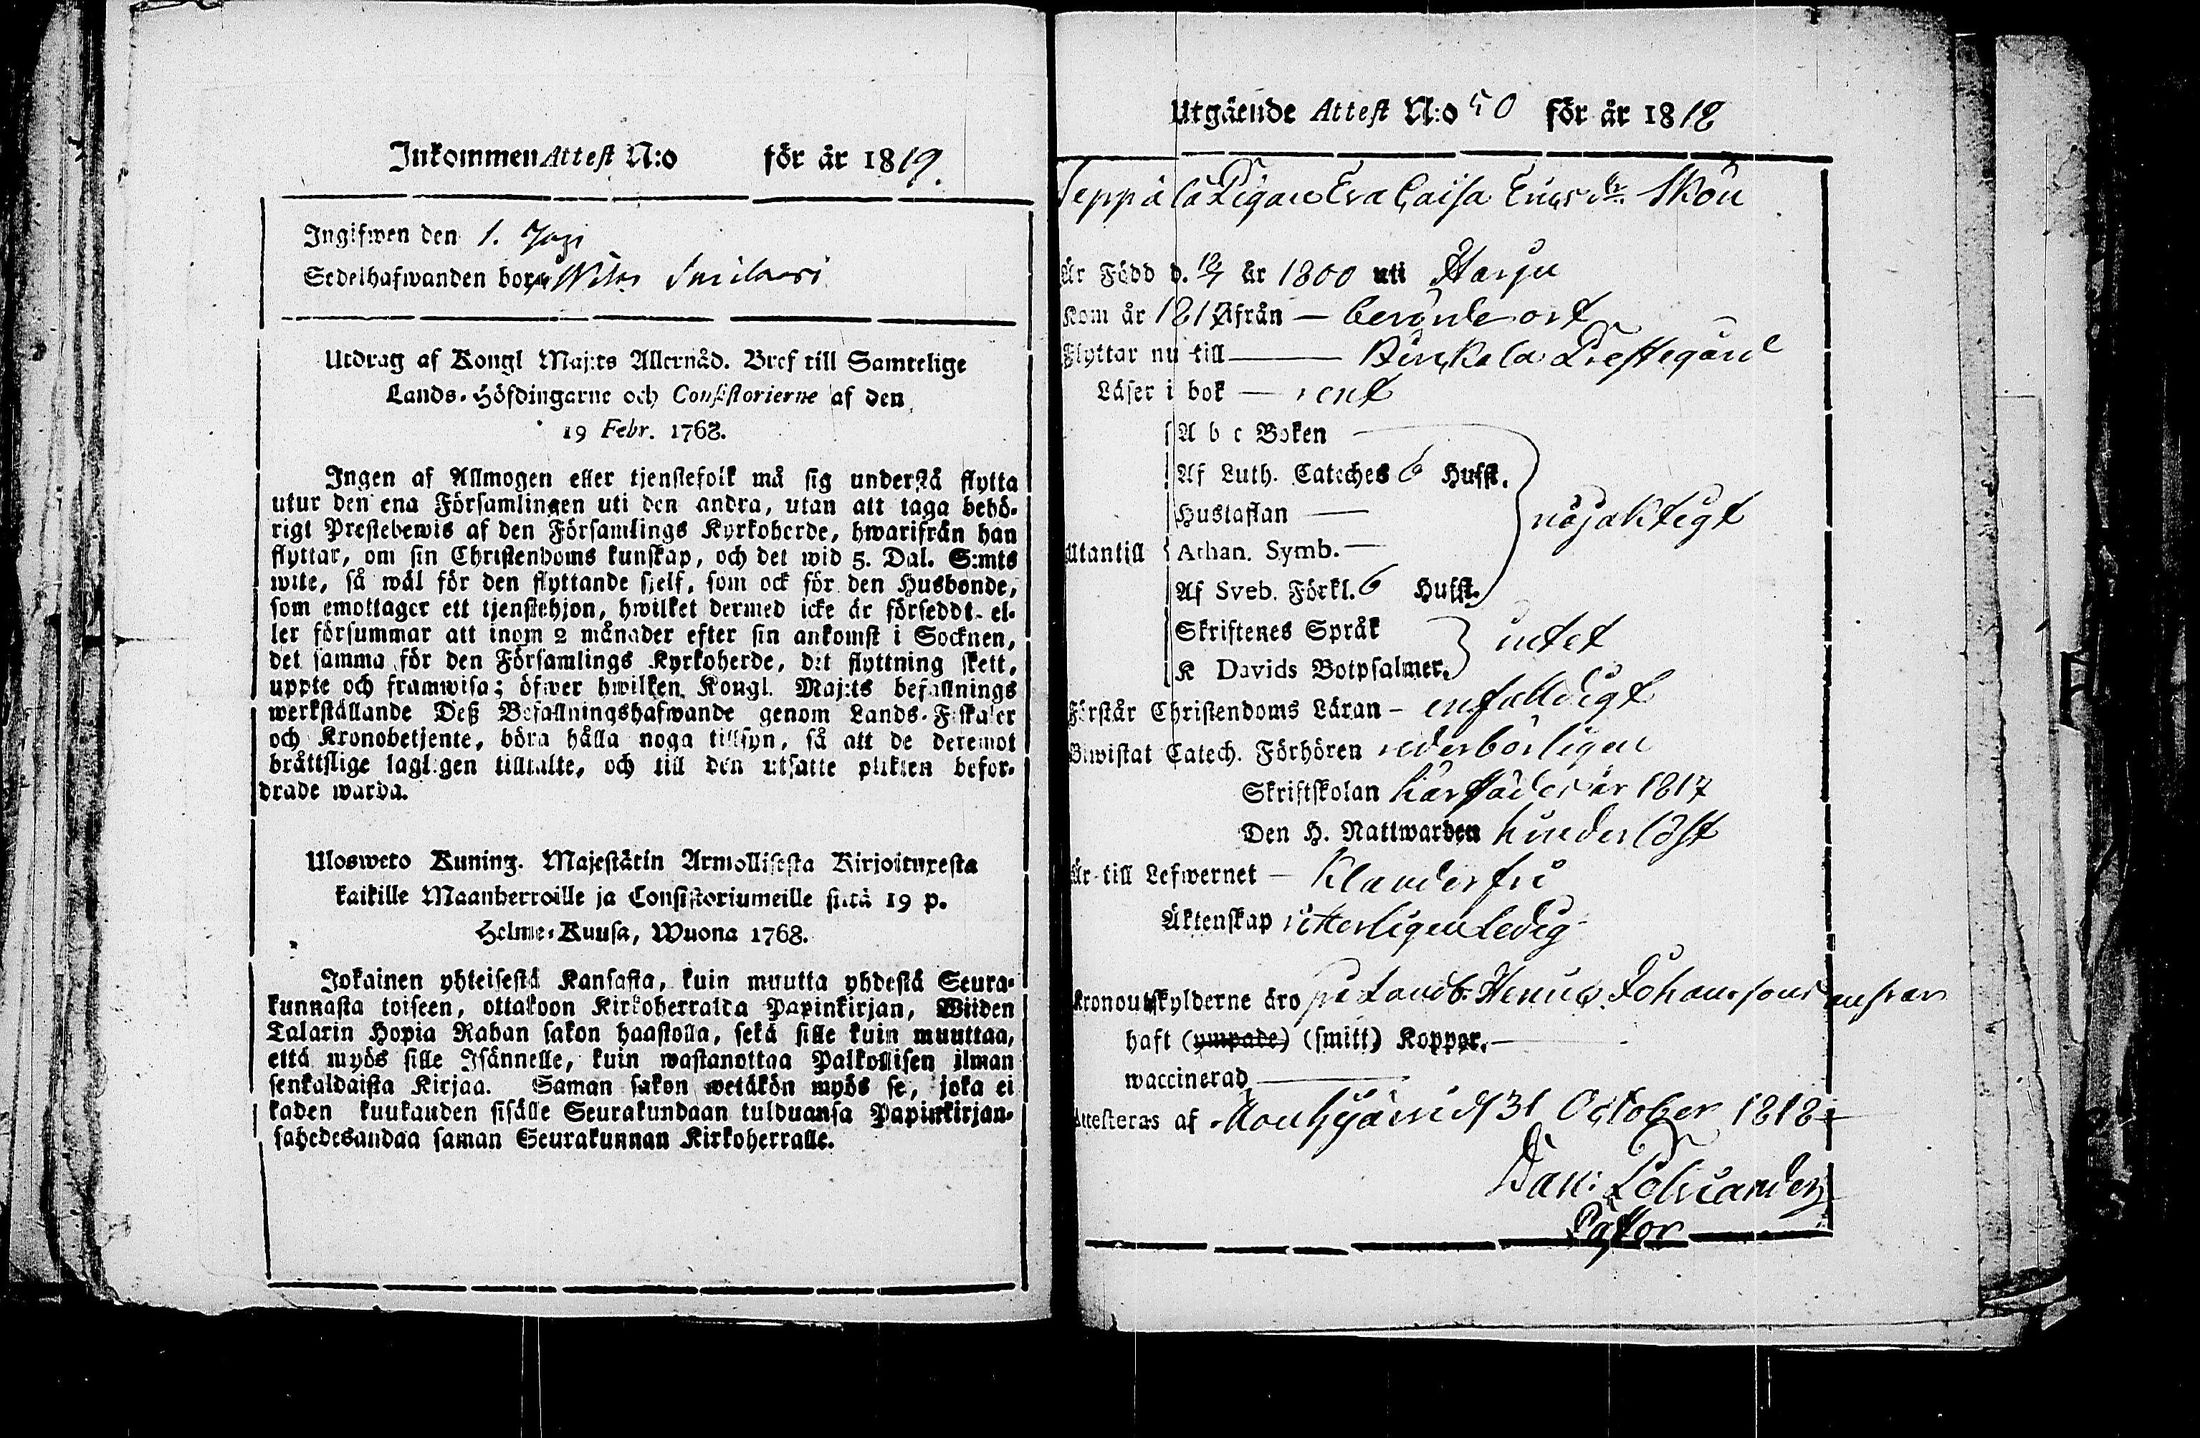 Inkommen Attest N:o för år 1819.
Ingifwen den 1.
Sedelhafwanden bor
Utdrag af Kongl Maj:ts Allernåd. Bref till Samtelige
Lands-Höfdingarne och Consistorierne af den
19 Febr. 1768.
Ingen af Allmogen eller tjenstefolk må sig understå flytta
utur den ena Församlingen uti den andra, utan att taga behö-
rigt Prestebewis af den Församlings Kyrkoherde, hwarifrån han
flyttar, om sin Christendoms kunskap, och det wid 5. Dal. S:mts
wite, så wäl för den flyttande sjelf, som ock för den Husbonde,
som emottager ett tjenstehjon, hwilket dermed icke är förseddt. el-
ler försummar att inom 2 månader efter sin ankomst i Socknen,
det samma för den Församlings Kyrkoherde, dit flyttning skett,
uppte och framwisa; öfwer hwilken Kongl. Maj:ts befallnings
werkställande Deß Befallningshafwande genom Lands-Fiskaler
och Kronobetjente, böra hålla noga tillsyn, så att de deremot
bråttslige lagligen tilltalte, och till den utsatte plikten befor-
drade warda.
Ulosweto Kuning. Majestätin Armollisesta Kirjoituxesta
kaikille Maanherroille ja Consistoriumeille siitä 19 p.
Helme-Kuusa, Wuona 1768.
Jokainen yhteisestä Kansasta, kuin muutta yhdestä Seura-
kunnasta toiseen, ottakoon Kirkoherralda Papinkirjan, Wiiden
Talarin Hopia Rahan sakon haastolla, sekä sille kuin muuttaa,
että myös sille Isännelle, kuin wastanottaa Palkollisen ilman
senkaldaista Kirjaa. Saman sakon wetäkön myös se, joka ei
kaden kuukauden sisälle Seurakundaan tulduansa Papinkirjan-
sahedesandaa saman Seurakunnan Kirkoherralle.
Utgående Attest N:o 50 för år 1818
Seppälä Pigan Eva Caisa Ericsdr. Skön
Är Född d. 12/7 år 1800 uti Harju
Kom år 1817 ifrån — berörde ort
Flyttar nu till — Birkkala Prestegård
Läser i bok — rent
A b c Boken
Af Luth. Cateches 6 Hufst.
Hustaflan — nöjaktigt
Utantill Athan. Symb. —
Af Sveb. Förkl. 6 Hufst.
Skriftenes Språk intet
K Davids Botpsalmer.
Förstår Christendoms Läran — enfaldigt
Biwistat Catech. Förhören wederbörligen
Skriftskolan härstädes år 1817
Den H. Nattwarden hinderlöst
Är till Lefwernet — Klanderfri
Äktenskap witterligen ledig
Kronoutskylderne äro på Landb. Henric Johanssons ansvar
haft (ympade) (smitt) Koppor. —
waccinerad —
Attesteras af Mouhijärvi d 31 October 1818
Dan: Polviander
Pastor